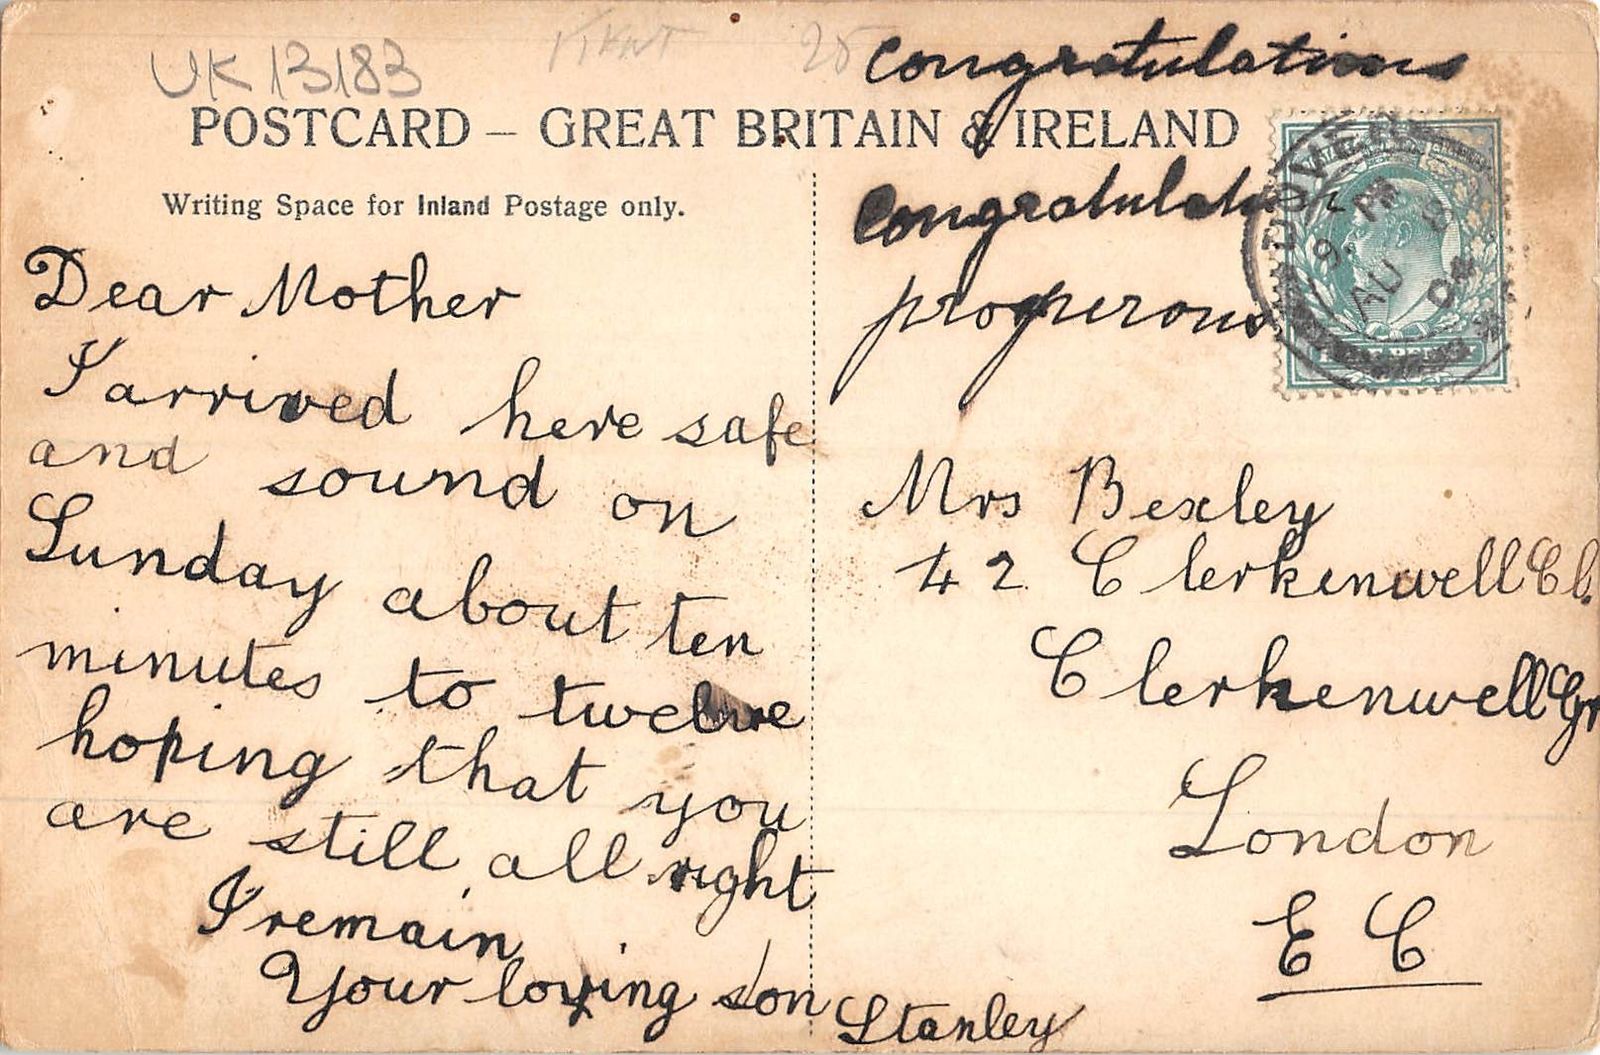 UK 13183
25
congratulations
POSTCARD – GREAT BRITAIN & IRELAND
Writing Space for Inland Postage only.
Congratulat
properous
DOVER
AU 9
04
HALFPENNY
Dear Mother
I arrived here safe
and sound on
Sunday about ten
minutes to twelve
hoping that you
are still all right
I remain
Your loving son Stanley
Mrs Bexley
42 Clerkenwell Cl.
Clerkenwell Gr
London
E C